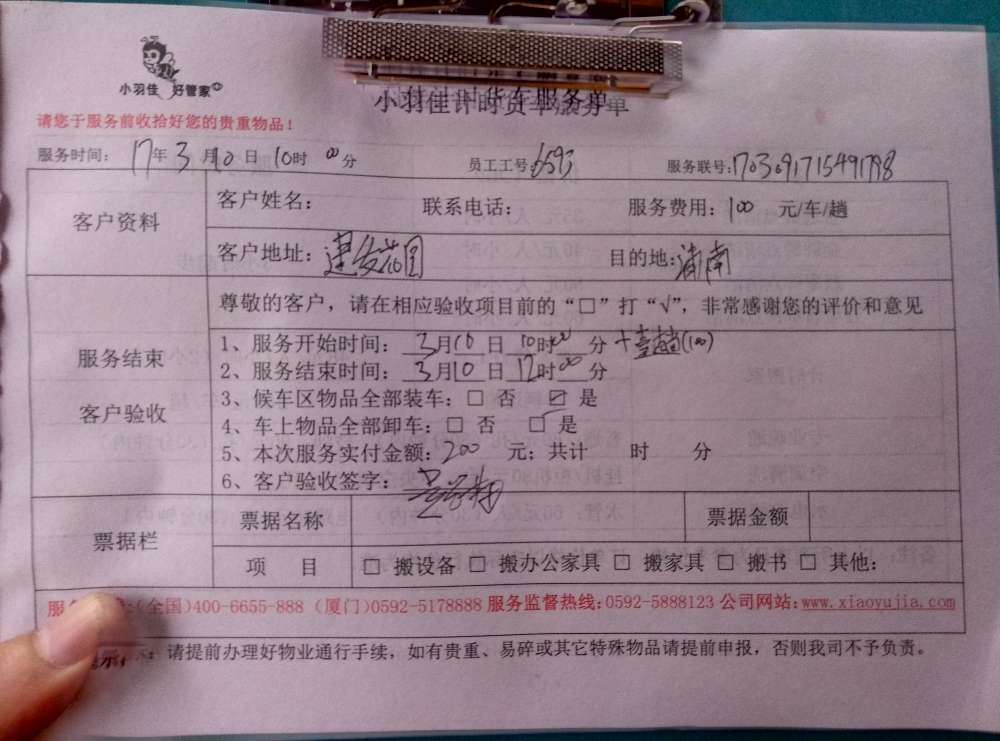 小羽佳 好管家
小羽佳计时货车服务单
请您于服务前收拾好您的贵重物品！
服务时间： 17年 3月10日 10时 00分 员工工号：6593 服务联号：1703091715491798
客户资料
客户姓名： 联系电话： 服务费用：100 元/车/趟
客户地址：建发花园 目的地：
尊敬的客户，请在相应验收项目前的“□”打“√”，非常感谢您的评价和意见
服务结束
客户验收
1、服务开始时间： 3月10日 10时00分 +壹趟(100)
2、服务结束时间： 3月10日 12时00分
3、候车区物品全部装车：□ 否 ☑ 是
4、车上物品全部卸车：□ 否 ☑ 是
5、本次服务实付金额：200 元；共计 时 分
6、客户验收签字：
票据栏
票据名称 票据金额
项 目 □ 搬设备 □ 搬办公家具 □ 搬家具 □ 搬书 □ 其他：
(全国)400-6655-888 (厦门)0592-5178888 服务监督热线：0592-5888123 公司网站：www.xiaoyujia.com
示：请提前办理好物业通行手续，如有贵重、易碎或其它特殊物品请提前申报，否则我司不予负责。